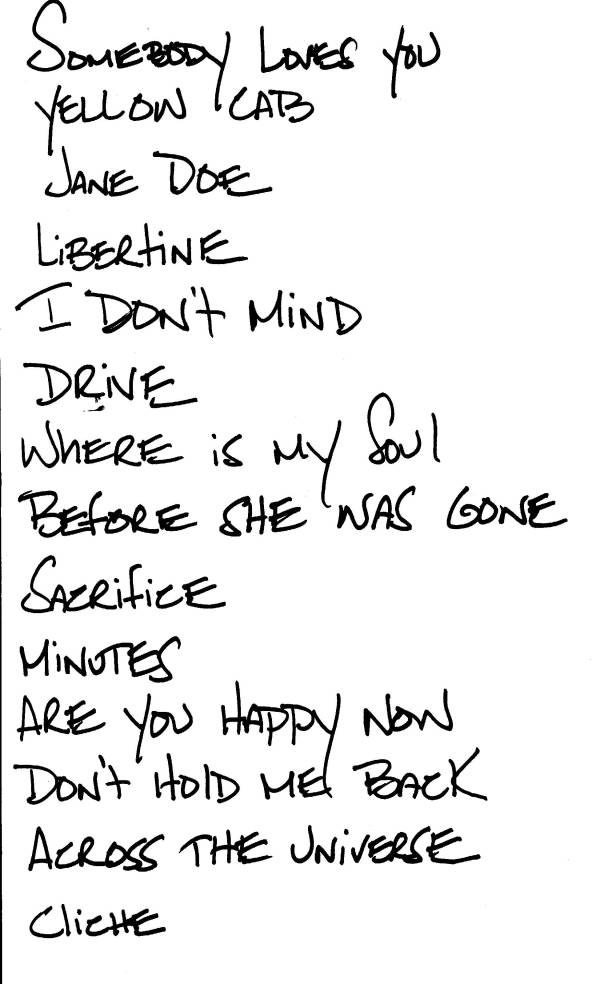 Somebody Loves You
Yellow Cab
Jane Doe
Libertine
I Don't Mind
Drive
Where is my Soul
Before She Was Gone
Sacrifice
Minutes
Are You Happy Now
Don't Hold Me Back
Across the Universe
Cliche